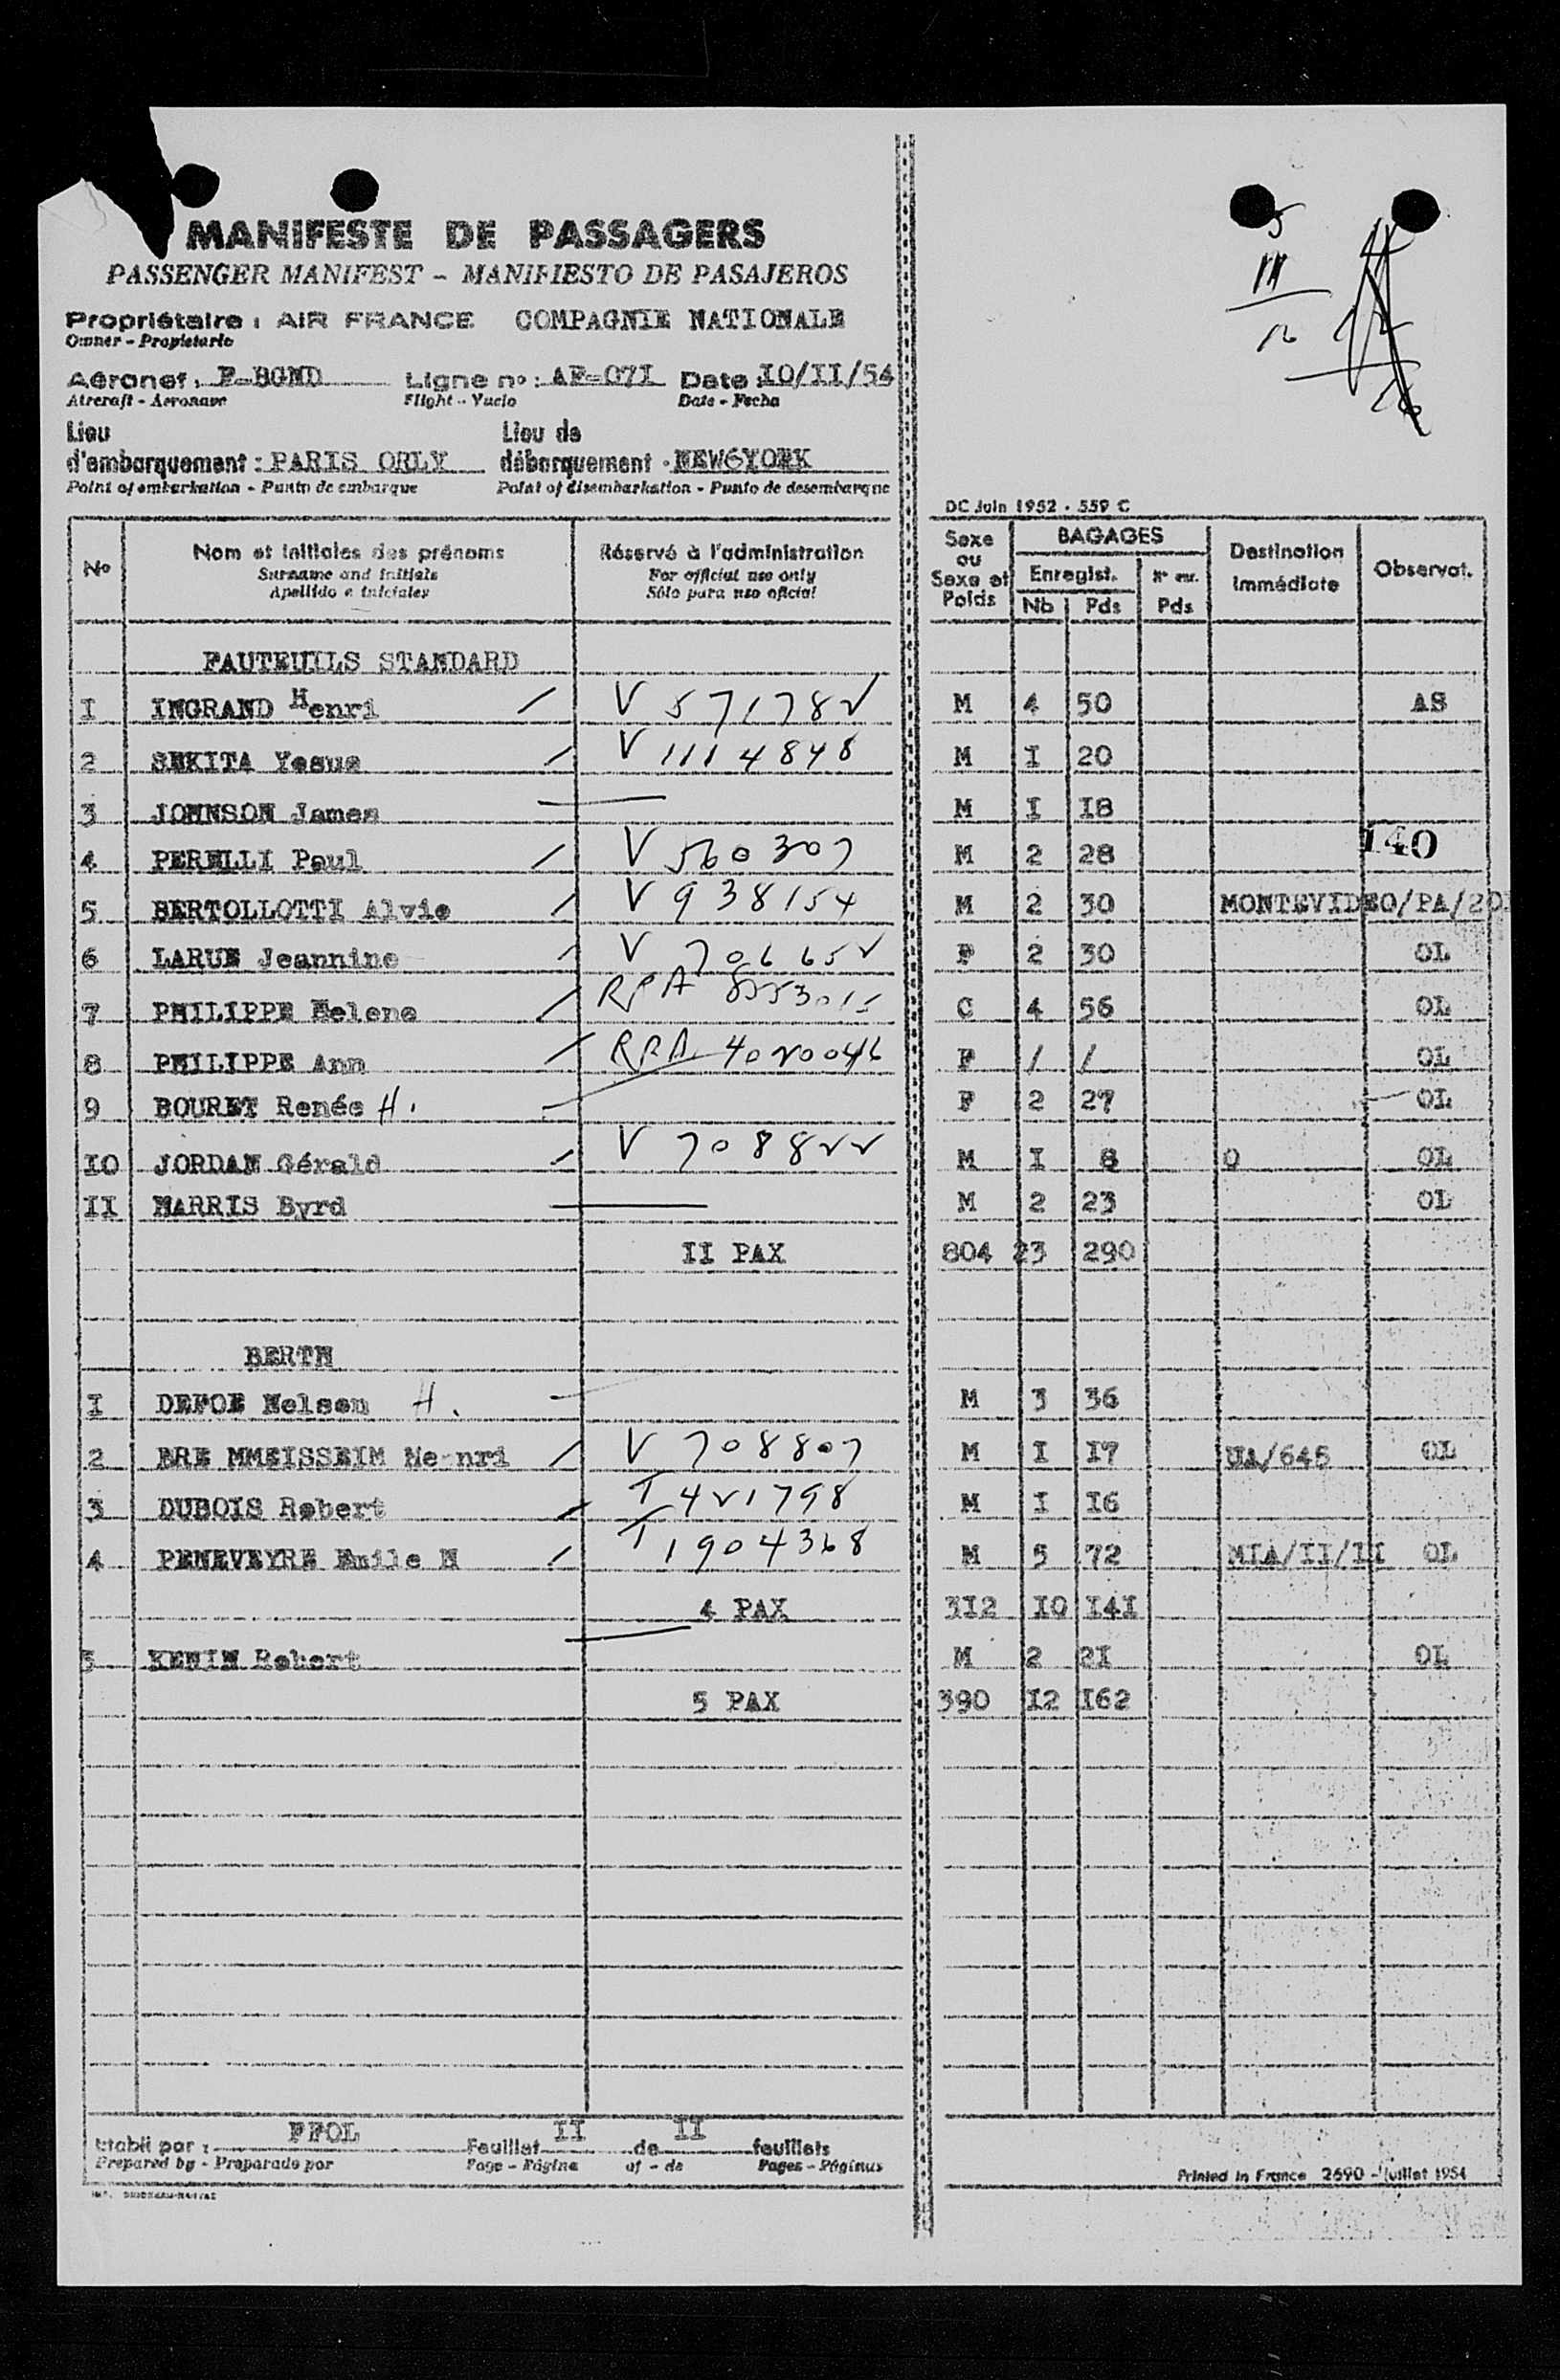 MANIFESTE DE PASSAGERS
PASSENGER MANIFEST - MANIFIESTO DE PASAJEROS
Propriétaire : AIR FRANCE COMPAGNIE NATIONALE
Owner - Propietario
Aéronef : F-BGND Ligne no : AF-071 Date : IO/II/54
Aircraft - Aeronave Flight - Vuelo Date - Fecha
Lieu d'embarquement : PARIS ORLY Lieu de débarquement : NEW6YORK
Point of embarkation - Punto de embarque Point of disembarkation - Punto de desembarque
DC Juin 1952 - 559 C
No Nom et initiales des prénoms Réservé à l'administration Sexe ou Sexe et Poids BAGAGES Destination immédiate Observat.
Surname and initials For official use only Enregist. No enr.
Apellido e iniciales Sólo para uso oficial Nb Pds Pds
FAUTEUILS STANDARD
I INGRAND Henri / V 571782 M 4 50 AS
2 SEKITA Yasua / V 1114848 M I 20
3 JOHNSON James — M I I8
140
4 PERELLI Paul / V 560307 M 2 28
5 BERTOLLOTTI Alvie / V 938154 M 2 30 MONTEVIDEO/PA/20
6 LARUE Jeannine / V 706652 F 2 30 OL
7 PHILIPPE Helene / RPA C 4 56 OL
8 PHILIPPE Ann / RPA 4020046 F / / OL
9 BOURET Renée H. F 2 27 OL
IO JORDAN Gérald / V 708822 M I 8 O OL
II HARRIS Byrd — M 2 23 OL
II PAX 804 23 290
BERTH
I DEFOE Nelson H. M 3 36
2 BRE MMEISSEIM He nri / V 708807 M I I7 UA/645 OL
3 DUBOIS Robert / T 421798 M I I6
4 PENEVEYRE Emile H / T 1904368 M 5 72 MIA/II/II OL
4 PAX 312 IO I4I
5 KENIN Robert — M 2 2I OL
5 PAX 390 I2 I62
Etabli par : FFOL Feuillet II de II feuillets
Prepared by - Preparado por Page - Página of - de Pages - Páginas
Printed in France 2690 - Juillet 1954